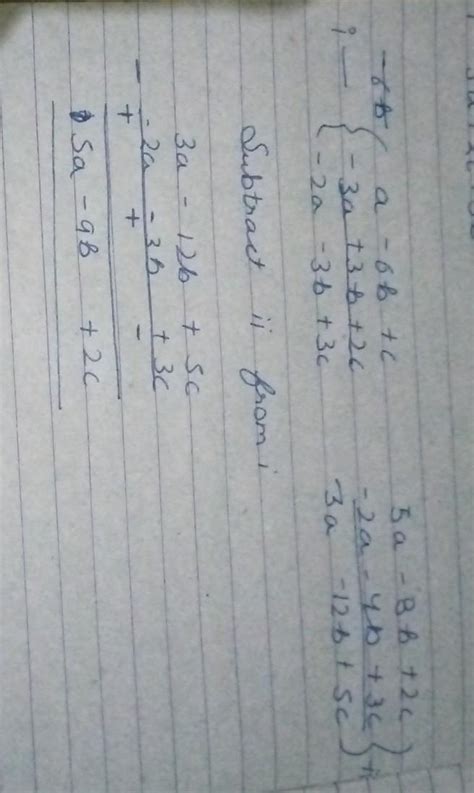 a - 6b + c    5a - 8b + 2c
i - { - 3a + 3b + 2c    -2a - 4b + 3c } ii
-2a - 3b + 3c    3a - 12b + 5c
Subtract ii from i
3a - 12b + 5c
-2a - 3b + 3c
- + + -
5a - 9b + 2c